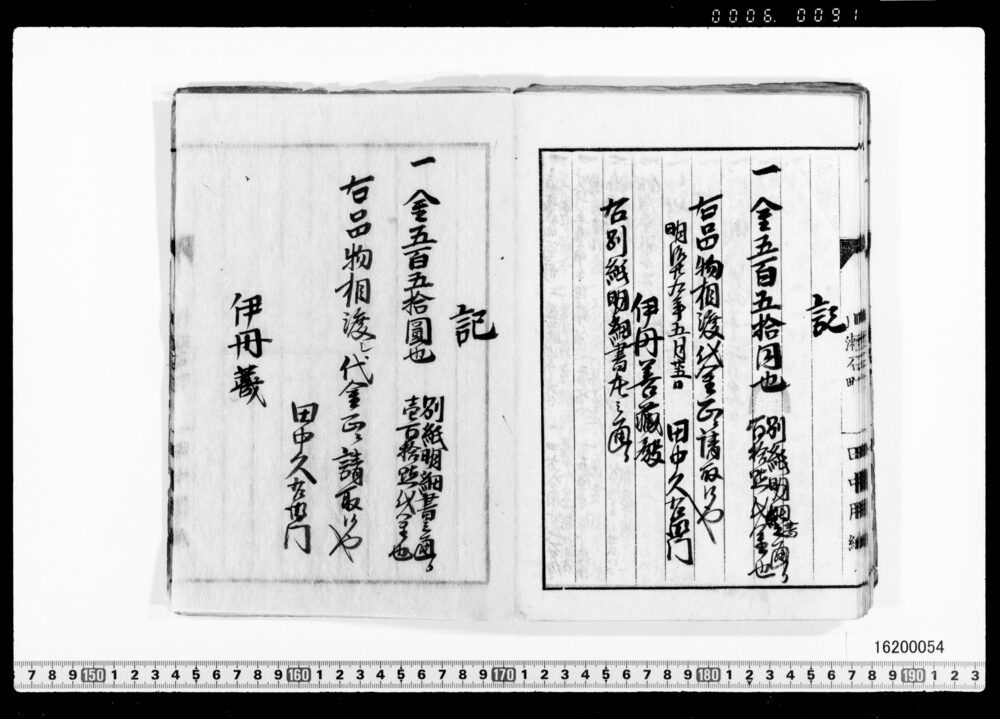 0006.0091
記
一金五百五拾円也
別紙明細書之通り
百拾点代金也
右品物相渡代金正ニ請取候也
明治廿九年五月廿五日
田中久右衛門
伊丹善蔵殿
右別紙明細書左之通り
津石町
田中用紙
記
一金五百五拾圓也
別紙明細書之通り
壱百拾点代金也
右品物相渡シ代金正ニ請取候也
田中久右衛門
伊丹蔵
16200054
7 8 9 150 1 2 3 4 5 6 7 8 9 160 1 2 3 4 5 6 7 8 9 170 1 2 3 4 5 6 7 8 9 180 1 2 3 4 5 6 7 8 9 190 1 2 3